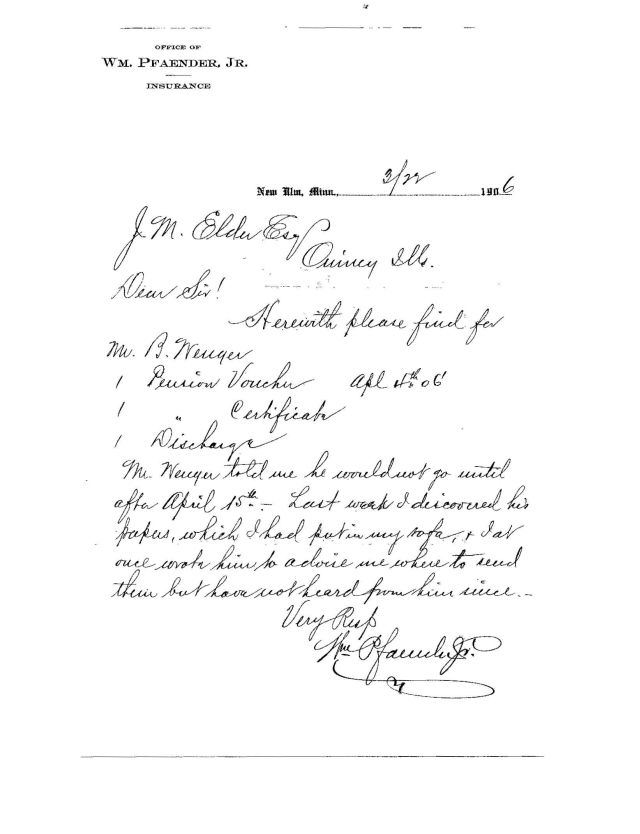 OFFICE OF
WM. PFAENDER, JR.
INSURANCE
New Ulm, Minn., 3/22 1906
J. M. Elder Esq
Quincy Ills.
Dear Sir!
Herewith please find for
Mr. B. Wenger
1 Pension Voucher Apl 4th 06
1 " Certificate
1 Discharge
Mr. Wenger told me he would not go until
after April 15th. – Last week I discovered his
papers, which I had put in my safe, & I at
once wrote him to advise me where to send
them but have not heard from him since. –
Very Resp
Wm Pfaender Jr.